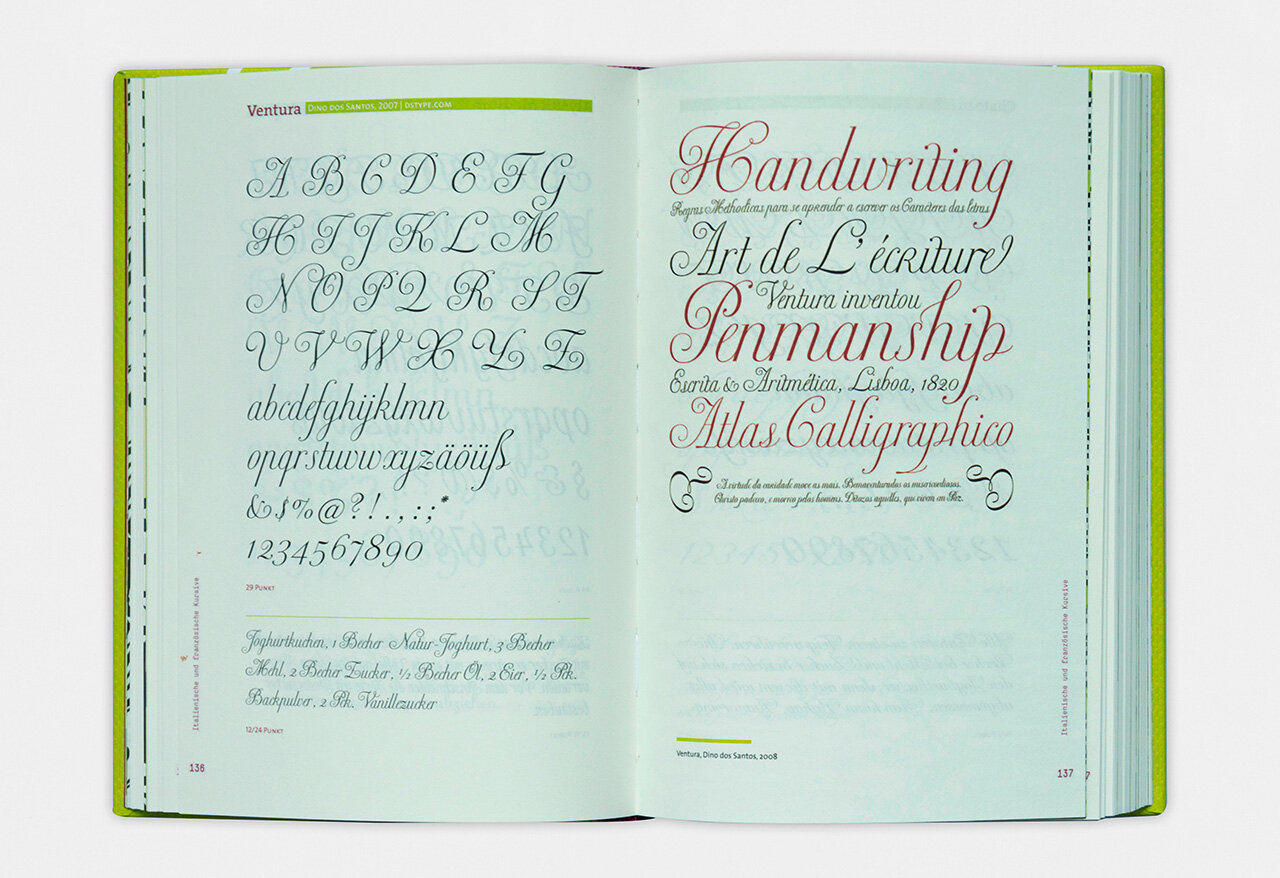 Ventura DINO DOS SANTOS, 2007 | DSTYPE.COM
A B C D E F G
H I J K L M
N O P Q R S T
U V W X Y Z
abcdefghijklmn
opqrstuvwxyzäöüß
&$%@?!.,:;*
1234567890
29 PUNKT
Joghurtkuchen, 1 Becher Natur-Joghurt, 3 Becher
Mehl, 2 Becher Zucker, ½ Becher Öl, 2 Eier, ½ Pk.
Backpulver, 2 Pk. Vanillezucker
12/24 PUNKT
Italienische und französische Kursive
136
Handwriting
Regras Methodicas para se aprender a escrever os Caracteres das letras
Art de L'écriture
Ventura inventou
Penmanship
Escrita & Aritmética, Lisboa, 1820
Atlas Calligraphico
A virtude da caridade move as mais. Bemaventurados os misericordiosos.
Christo padeceo, e morreo pelos homens. Ditozos aquelles, que vivem em Paz.
Ventura, Dino dos Santos, 2008
Italienische und französische Kursive
137
7